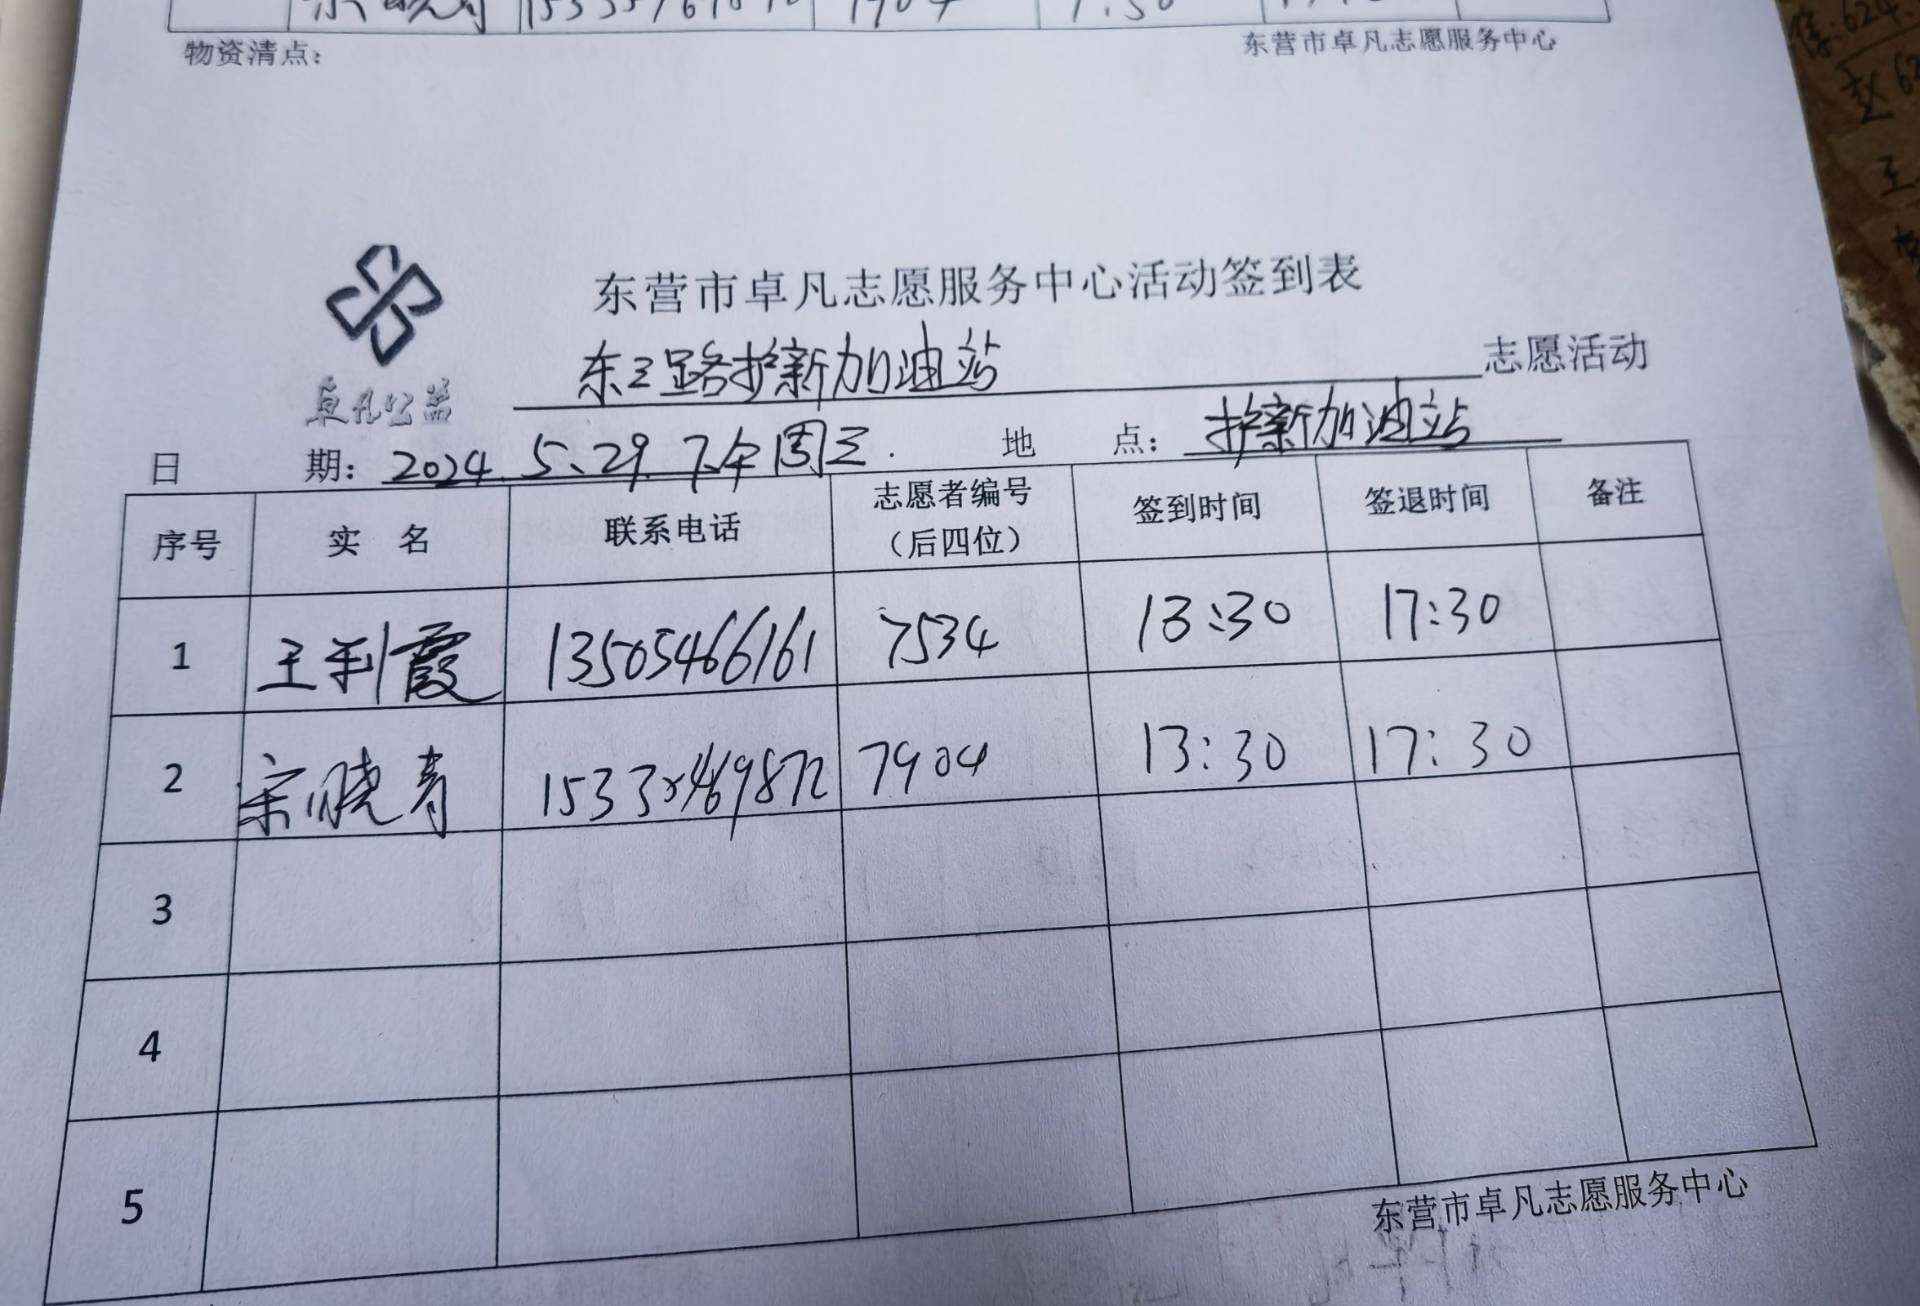 物资清点：
东营市卓凡志愿服务中心
东营市卓凡志愿服务中心活动签到表
卓凡公益
东三路护新加油站 志愿活动
日 期：2024.5.29.下午周三. 地 点：护新加油站
序号 实 名 联系电话 志愿者编号（后四位） 签到时间 签退时间 备注
1 王利霞 13505466161 7534 13:30 17:30
2 宋晓青 15335469872 7904 13:30 17:30
3
4
5
东营市卓凡志愿服务中心